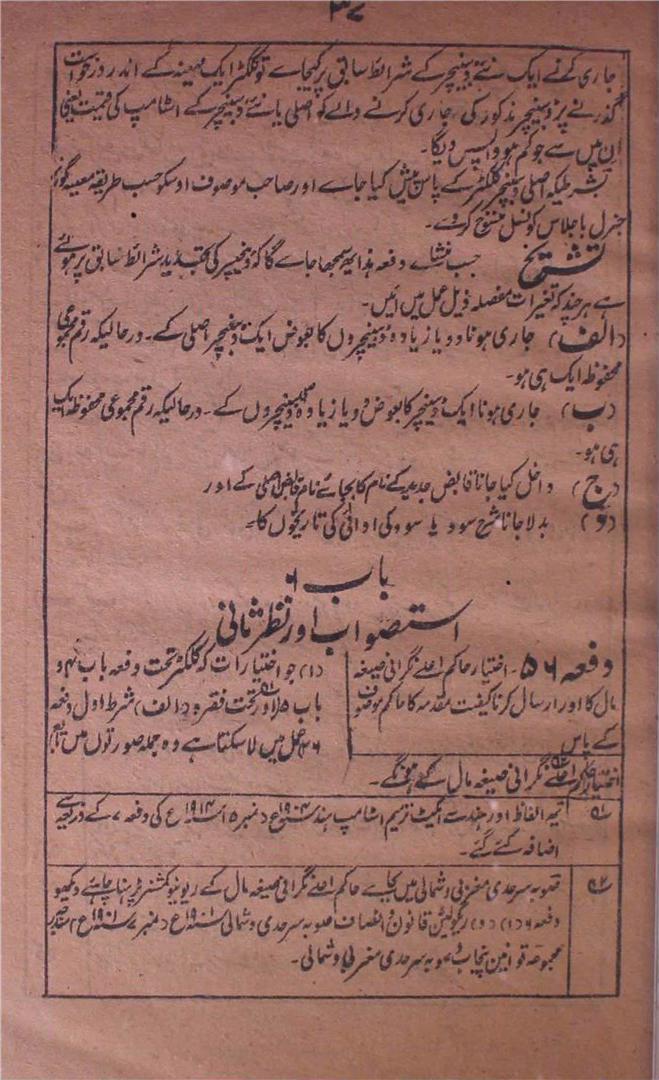 ۳۷
جاری کرنے ایک نئے ڈبینچر کے شرائط سابق پر کیجاے تو کلکٹر ایک مہینہ کے اندر درخواست
گذرنے پر ڈبینچر مذکور کی جاری کرنے والے کو اصلی یا نئے ڈبینچر کے اسٹامپ کی قیمت یعنی
ان میں سے جو کم ہو واپس دیگا۔
بشرطیکہ اصلی ڈبینچر کلکٹر کے پاس پیش کیا جاے اور صاحب موصوف اوسکو حسب طریقہ معینہ گورنر
جنرل باجلاس کونسل منسوخ کردے۔
تشریح حسب منشاے دفعہ ہذا یہ سمجھا جاے گا کہ ڈبنچر کی تجدید شرائط سابق پر ہوئی
ہے ہرچند کہ تغیرات مفصلہ ذیل عمل میں آئیں۔
(الف) جاری ہونا دو یا زیادہ ڈبینچروں کا بعوض ایک ڈبینچر اصلی کے۔ درحالیکہ رقم مجموعی
محفوظہ ایک ہی ہو۔
(ب) جاری ہونا ایک ڈبینچر کا بعوض دو یا زیادہ اصلی ڈبینچروں کے۔ درحالیکہ رقم مجموعی محفوظہ ایک
ہی ہو۔
(ج) داخل کیا جانا قابض جدید کے نام کا بجائے نام قابض اصلی کے اور
(د) بدلا جانا شرح سود یا سود کی ادائی کی تاریخوں کا۔
باب ۶
استصواب اور نظر ثانی
دفعہ ۵۶۔ اختیار حاکم اعلے نگرانی صیغہ
مال کا اور ارسال کرنا کیفیت مقدمہ کا حاکم موصوف
کے پاس
(۱) جو اختیارات کہ کلکٹر تحت دفعہ باب ۴ و
باب ۵ (اور تحت فقرہ (الف) شرط اول دفعہ
۲۶ عمل میں لا سکتا ہے وہ جملہ صورتوں میں تابع
اختیار حاکم اعلے نگرانی صیغہ مال کے ہونگے۔
۵۱ یہ الفاظ اور ہندسے ایکٹ ترمیم اسٹامپ ہند ۱۹۰۴ع (نمبر ۱۵ ۱۹۰۴ع) کی دفعہ ۷ کے ذریعہ سے
اضافہ کئے گئے۔
۵۲ صوبہ سرحدی مغربی و شمالی میں بجاے حاکم اعلے نگرانی صیغہ مال کے ریونیو کمشنر پڑھنا چاہئے دیکھو
دفعہ ۶ (۱) (د) ریگولیشن قانون و انصاف صوبہ سرحدی و شمالی ۱۹۰۱ع (نمبر ۷ ۱۹۰۱ع)
مجموعہ قوانین پنجاب و صوبہ سرحدی مغربی و شمالی۔